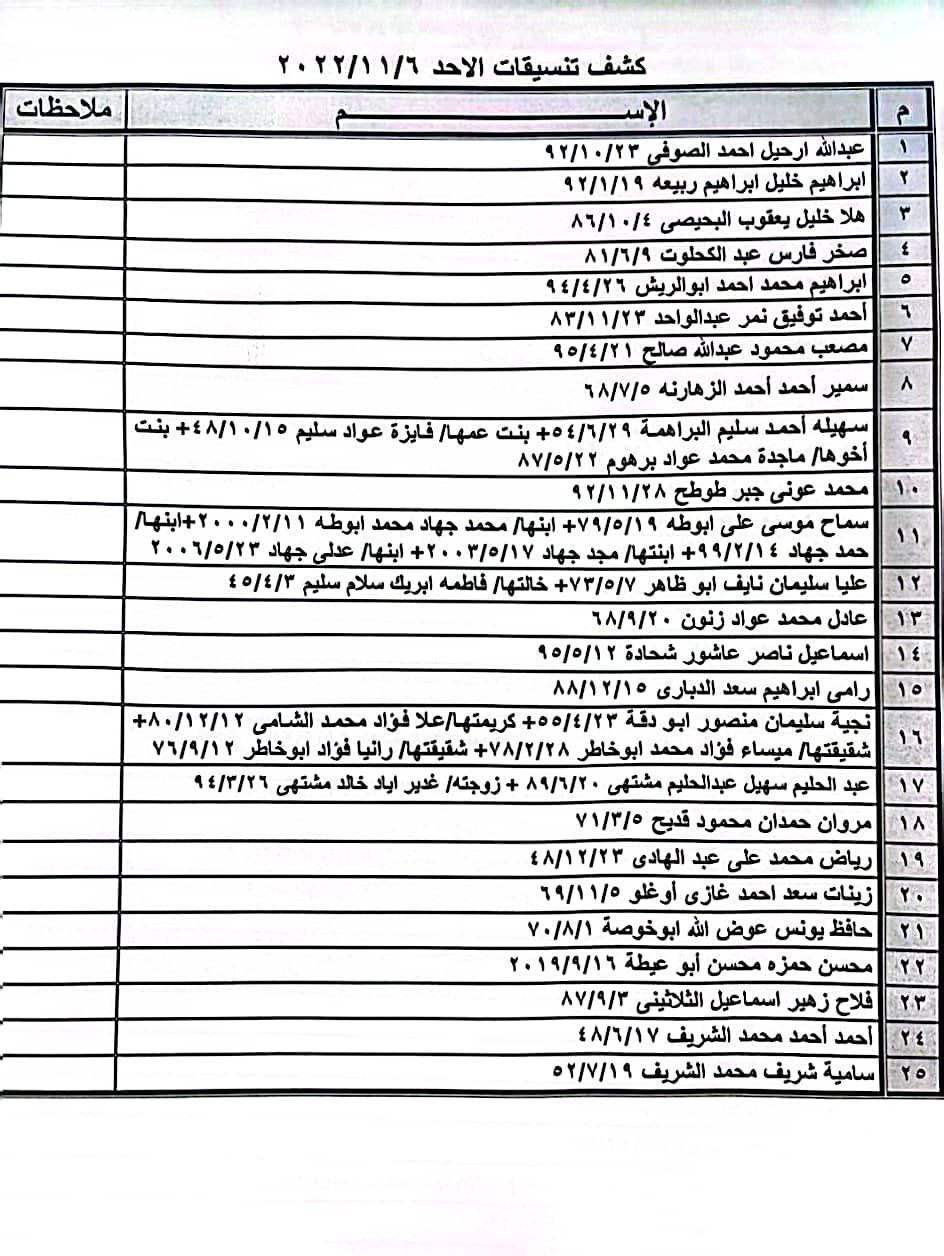 كشف تنسيقات الاحد ٢٠٢٢/١١/٦
م الإســـــــــم ملاحظات
١ عبدالله ارحيل احمد الصوفى ٩٢/١٠/٢٣
٢ ابراهيم خليل ابراهيم ربيعه ٩٢/١/١٩
٣ هلا خليل يعقوب البحيصى ٨٦/١٠/٤
٤ صخر فارس عبد الكحلوت ٨١/٦/٩
٥ ابراهيم محمد احمد ابوالريش ٩٤/٤/٢٦
٦ أحمد توفيق نمر عبدالواحد ٨٣/١١/٢٣
٧ مصعب محمود عبدالله صالح ٩٥/٤/٢١
٨ سمير أحمد أحمد الزهارنه ٦٨/٧/٥
٩ سهيله أحمد سليم البراهمة ٥٤/٦/٢٩+ بنت عمها/ فايزة عواد سليم ٤٨/١٠/١٥+ بنت
أخوها/ ماجدة محمد عواد برهوم ٨٧/٥/٢٢
١٠ محمد عونى جبر طوطح ٩٢/١١/٢٨
١١ سماح موسى على ابوطه ٧٩/٥/١٩+ ابنها/ محمد جهاد محمد ابوطه ٢٠٠٠/٢/١١+ابنها/
حمد جهاد ٩٩/٢/١٤+ ابنتها/ مجد جهاد ٢٠٠٣/٥/١٧+ ابنها/ عدلى جهاد ٢٠٠٦/٥/٢٣
١٢ عليا سليمان نايف ابو ظاهر ٧٣/٥/٧+ خالتها/ فاطمه ابريك سلام سليم ٤٥/٤/٣
١٣ عادل محمد عواد زنون ٦٨/٩/٢٠
١٤ اسماعيل ناصر عاشور شحادة ٩٥/٥/١٢
١٥ رامى ابراهيم سعد الدبارى ٨٨/١٢/١٥
١٦ نجية سليمان منصور ابو دقة ٥٥/٤/٢٣+ كريمتها/علا فؤاد محمد الشامى ٨٠/١٢/١٢+
شقيقتها/ ميساء فؤاد محمد ابوخاطر ٧٨/٢/٢٨+ شقيقتها/ رانيا فؤاد ابوخاطر ٧٦/٩/١٢
١٧ عبد الحليم سهيل عبدالحليم مشتهى ٨٩/٦/٢٠ + زوجته/ غدير اياد خالد مشتهى ٩٤/٣/٢٦
١٨ مروان حمدان محمود قديح ٧١/٣/٥
١٩ رياض محمد على عبد الهادى ٤٨/١٢/٢٣
٢٠ زينات سعد احمد غازى أوغلو ٦٩/١١/٥
٢١ حافظ يونس عوض الله ابوخوصة ٧٠/٨/١
٢٢ محسن حمزه محسن أبو عيطة ٢٠١٩/٩/١٦
٢٣ فلاح زهير اسماعيل الثلاثينى ٨٧/٩/٣
٢٤ أحمد أحمد محمد الشريف ٤٨/٦/١٧
٢٥ سامية شريف محمد الشريف ٥٢/٧/١٩